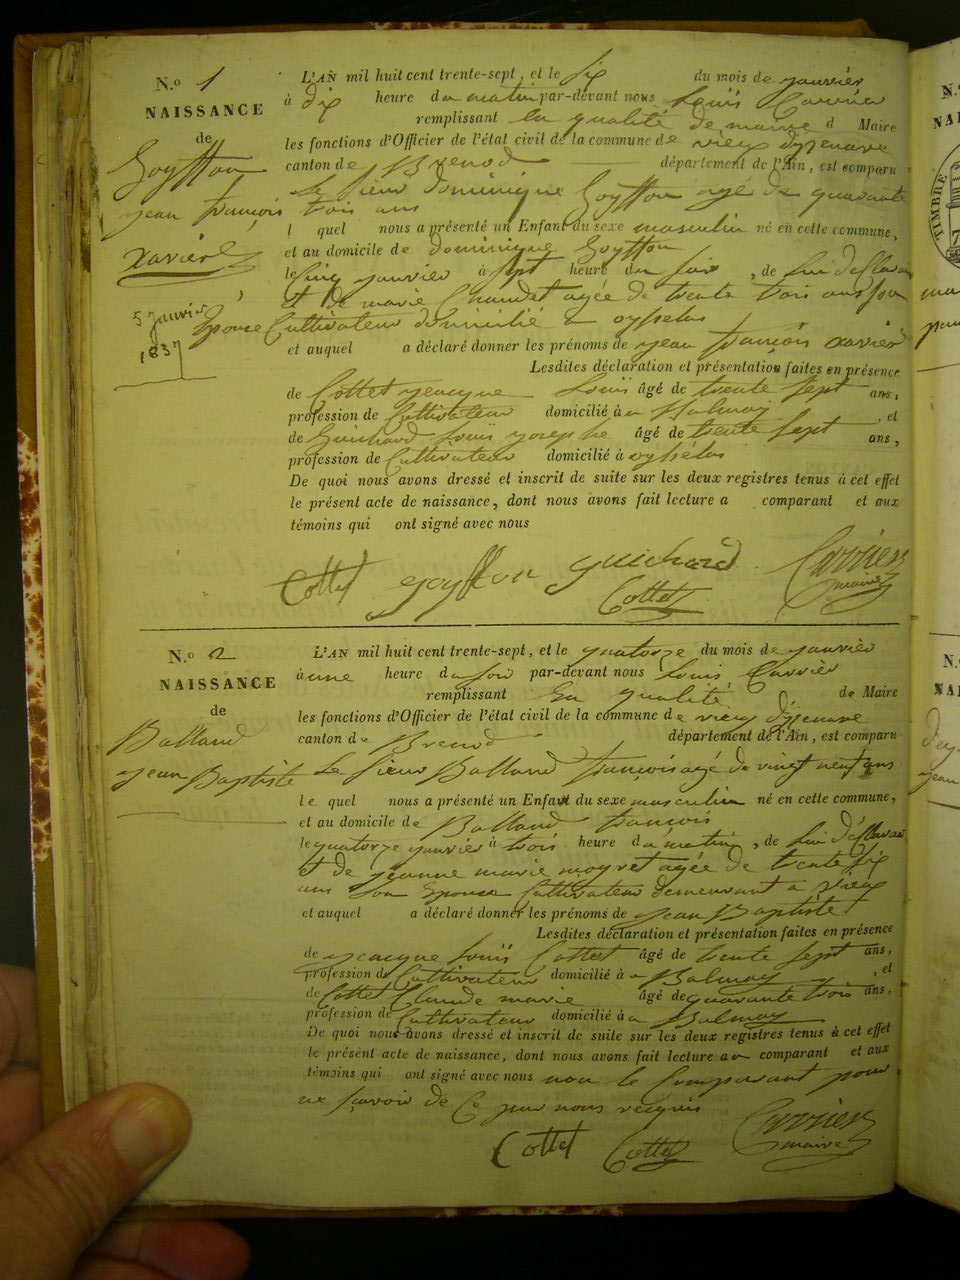 N.º 1
NAISSANCE
de
Goyffon
jean françois
xavier
5 janvier
1837
L'AN mil huit cent trente-sept, et le six du mois de janvier
à dix heure du matin par-devant nous Louis Carrier
remplissant en qualité de maire d Maire
les fonctions d'Officier de l'état civil de la commune de vieux d'yzenave
canton de Brenod département de l'Ain, est comparu
Le sieur dominique Goyffon agé de quarante
trois ans
l quel nous a présenté un Enfant du sexe masculin né en cette commune,
et au domicile de dominique Goyffon
le cinq janvier à sept heure du soir , de lui déclarant
et de marie Chaudet agée de trente trois ans son
Epouse Cultivateur domicilié a
et auquel a déclaré donner les prénoms de jean françois xavier
Lesdites déclaration et présentation faites en présence
de Cottet jeacque Louis âgé de trente sept ans,
profession de Cultivateur domicilié à , et
de Guichard Louis josephe âgé de trente sept ans,
profession de Cultivateur domicilié à
De quoi nous avons dressé et inscrit de suite sur les deux registres tenus à cet effet
le présent acte de naissance, dont nous avons fait lecture a comparant et aux
témoins qui ont signé avec nous
Cottet goyffon guichard Carrier
Cottet maire
N.º 2
NAISSANCE
de
Balland
jean Baptiste
L'AN mil huit cent trente-sept, et le quatorze du mois de janvier
à une heure du soir par-devant nous Louis Carrier
remplissant En qualité de Maire
les fonctions d'Officier de l'état civil de la commune de vieux d'yzenave
canton de Brenod département de l'Ain, est comparu
Le sieur Balland françois agé de vingt neuf ans
le quel nous a présenté un Enfant du sexe masculin né en cette commune,
et au domicile de Balland françois
le quatorze janvier à trois heure du matin , de lui déclarant
et de jeanne marie moyret agée de trente six
ans son Epouse Cultivateur demeurant a vieux
et auquel a déclaré donner les prénoms de jean Baptiste
Lesdites déclaration et présentation faites en présence
de jeacque Louis Cottet âgé de trente sept ans,
profession de Cultivateur domicilié à a Balmay , et
de Cottet Claude marie âgé de quarante trois ans,
profession de Cultivateur domicilié à a Balmay
De quoi nous avons dressé et inscrit de suite sur les deux registres tenus à cet effet
le présent acte de naissance, dont nous avons fait lecture au comparant et aux
témoins qui ont signé avec nous non le Comparant pour
ne savoir de Ce par nous requis
Cottet Cottet Carrier
maire
TIMBRE